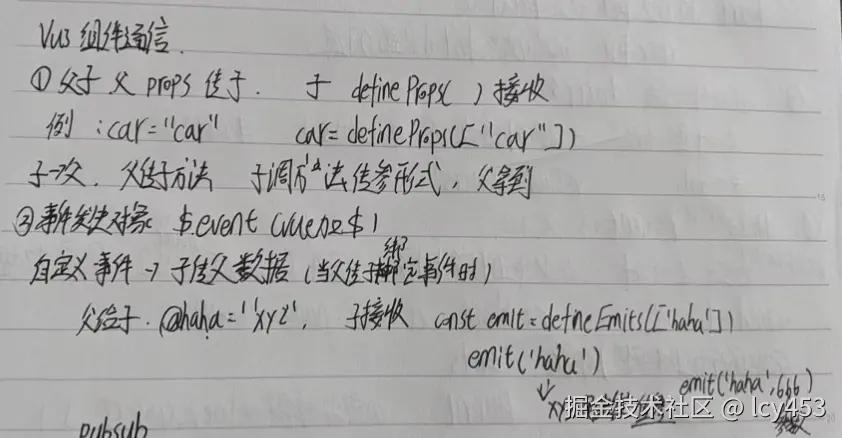 Vu3 组件通信.
① 父子 父 props 传子. 子 defineProps( ) 接收
例 :car="car" car=defineProps(["car"])
子→父. 父传子方法 子调方法传参形式, 父拿到
②事件 对象 $event
绑
自定义事件→子传父数据(当父传子绑定事件时)
父给子. @haha='xyz', 子接收 const emit=defineEmits(['haha'])
emit('haha')
emit('haha',666)
↓
xyz
参数
掘金技术社区 @ lcy453
pubsub